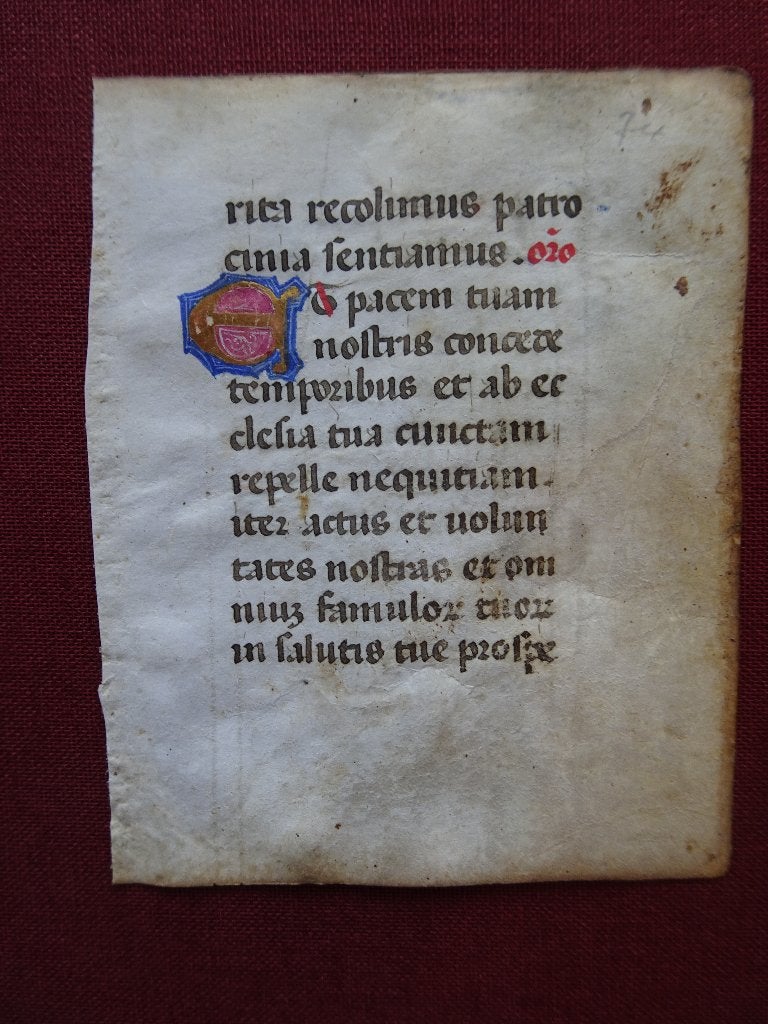 74
rita recolimus patro
cinia sentiamus. oro
Et pacem tuam
nostris concede
temporibus et ab ec
clesia tua cunctam
repelle nequitiam.
iter actus et uolun
tates nostras et om
niuꝫ famuloꝝ tuoꝝ
in salutis tue prospe